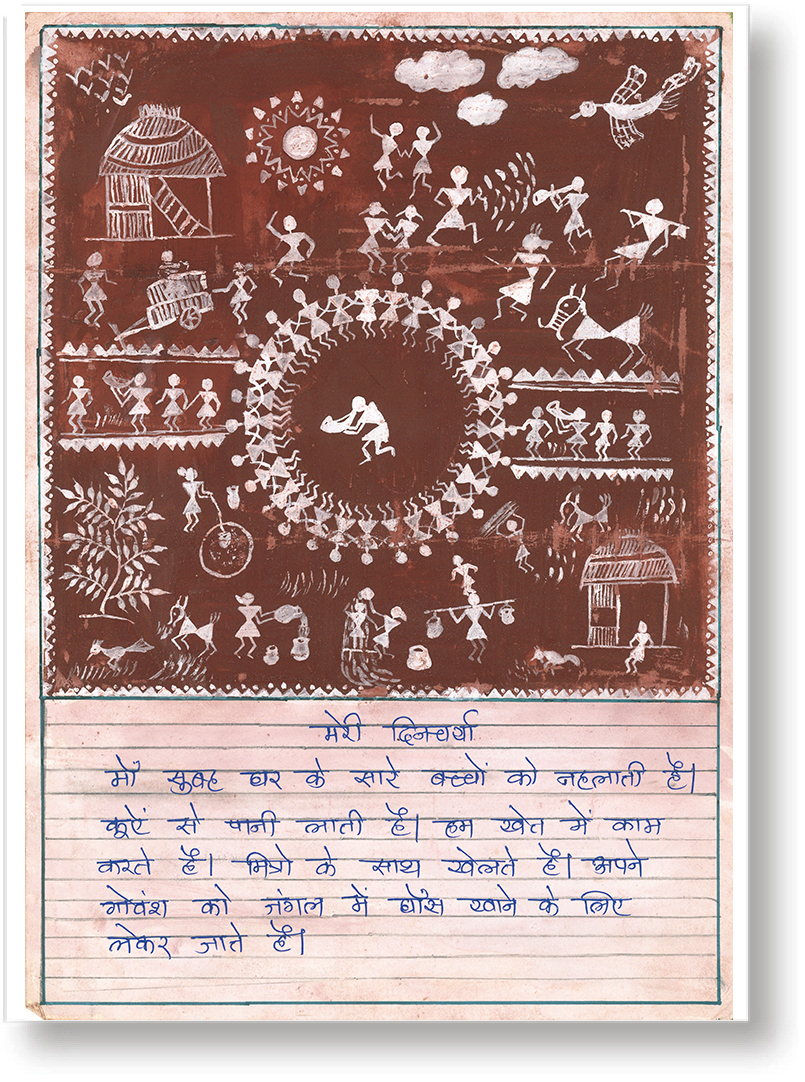 मेरी दिनचर्या
माँ सुबह घर के सारे बच्चों को नहलाती हैं।
कूऐं से पानी लाती हैं। हम खेत में काम
करते हैं। मित्रो के साथ खेलते हैं। अपने
गोवंश को जंगल में घाँस खाने के लिए
लेकर जाते हैं।